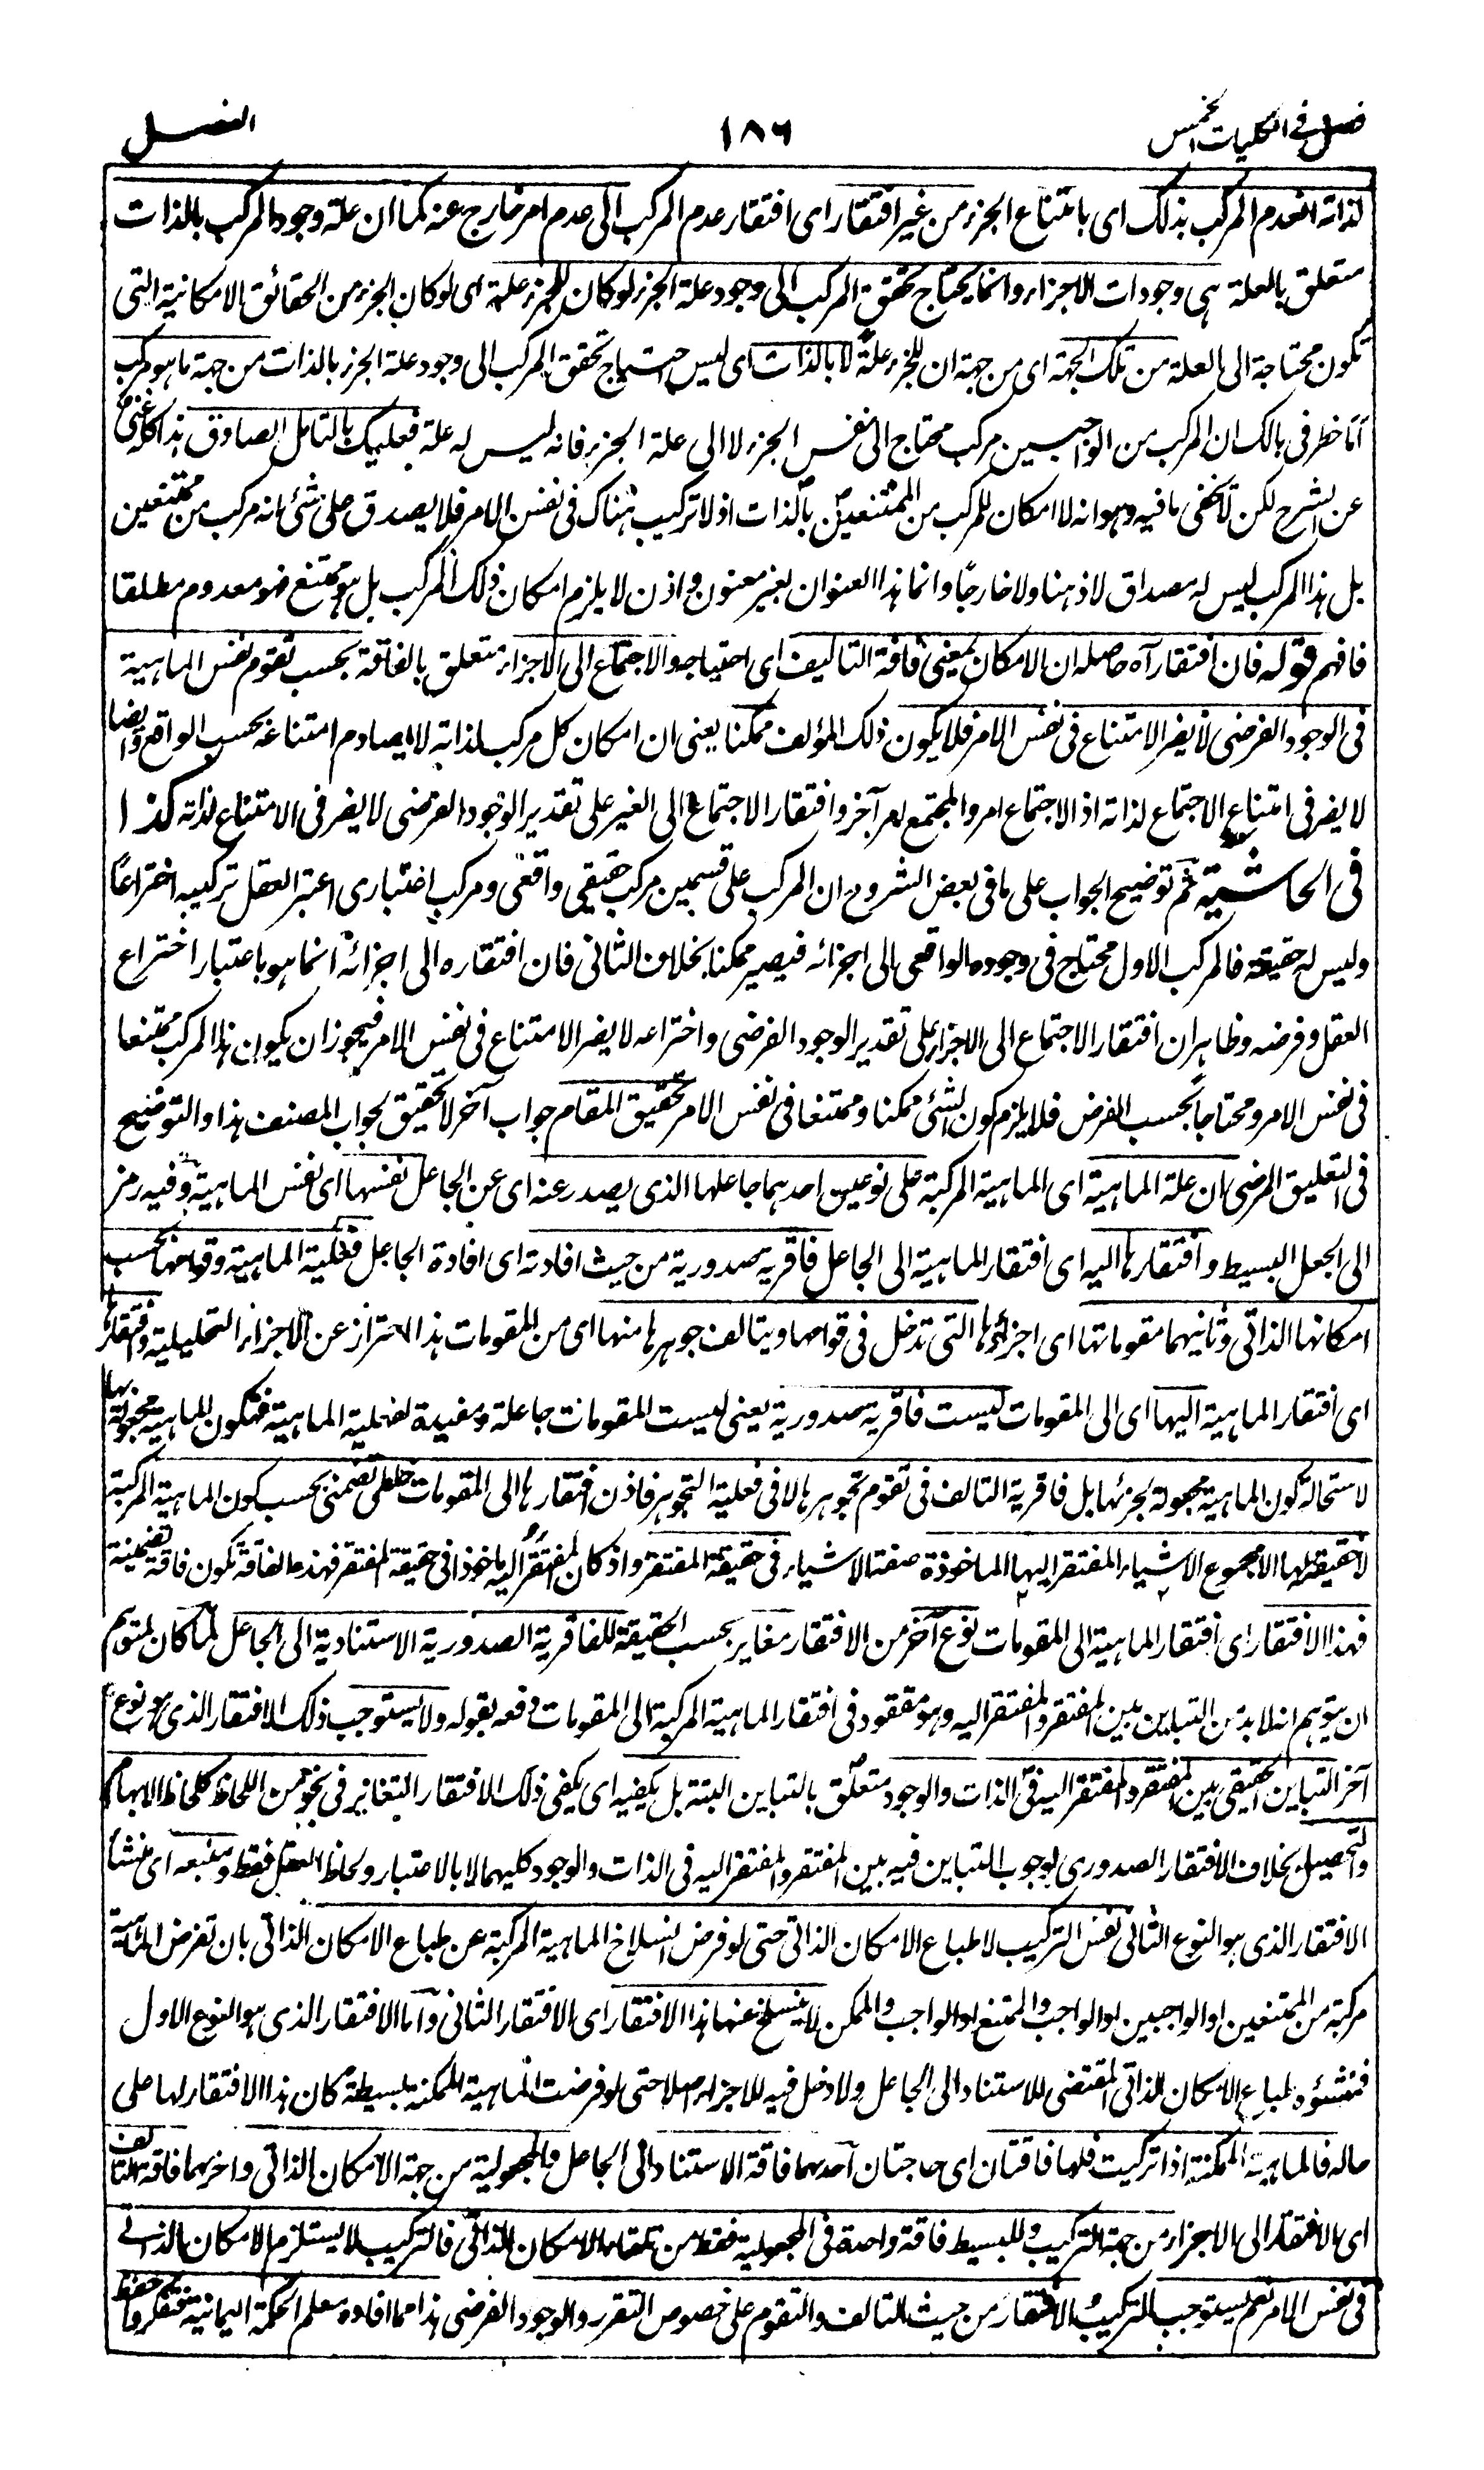 فصل في الكليات الخمس
١٨٦
الفصل
لذاته انعدم المركب بذلك اى بامتناع الجزء من غير افتقار اى افتقار عدم المركب الى عدم امر خارج عنه كما ان علة وجود المركب بالذات
متعلق بالعلة هى وجودات الاجزاء وانما يحتاج تحقق المركب الى وجود علة الجزء لو كان للجزء علة اى لو كان الجزء من الحقائق الامكانية التى
تكون محتاجة الى العلة من تلك الجهة اى من جهة ان للجزء علة لا بالذات اى ليس احتياج تحقق المركب الى وجود علة الجزء بالذات من جهة ما هو مركب
اما خطر فى بالك ان المركب من الواجبين مركب محتاج الى نفس الجزء لا الى علة الجزء فانه ليس له علة فعليك بالتامل الصادق هذا كله غنى
عن الشرح لكن لا يخفى ما فيه وهو انه لا امكان للمركب من الممتنعين بالذات اذ لا تركيب هناك فى نفس الامر فلا يصدق على شئ انه مركب من ممتنعين
بل هذا المركب ليس له مصداق لا ذهنا ولا خارجًا وانما هذا العنوان بغير معنون واذن لا يلزم امكان ذلك المركب بل هو ممتنع فهو معدوم مطلقا
فافهم قوله فان افتقار آه حاصله ان الامكان بمعنى فاقة التاليف اى احتياجه والاجتماع الى الاجزاء متعلق بالفاقة بحسب تقوم نفس الماهية
فى الوجود الفرضى لا يضر الامتناع فى نفس الامر فلا يكون ذلك المؤلف ممكنا يعنى ان امكان كل مركب لذاته لا يصادم امتناعه بحسب الواقع وايضا
لا يضر فى امتناع الاجتماع لذاته اذ الاجتماع امر والمجتمع امر آخر وافتقار الاجتماع الى الغير على تقدير الوجود الفرضى لا يضر فى الامتناع لذاته كذا
فى الحاشية ثم توضيح الجواب على ما فى بعض الشروح ان المركب على قسمين مركب حقيقى واقعى ومركب اختبارى اعتبر العقل تركيبه اختراعًا
وليس له حقيقة فالمركب الاول محتاج فى وجوده الواقعى الى اجزائه فيصير ممكنا بخلاف الثانى فان افتقاره الى اجزائه انما هو باعتبار اختراع
العقل وفرضه وظاهر ان افتقار الاجتماع الى الاجزاء على تقدير الوجود الفرضى واختراعه لا يضر الامتناع فى نفس الامر فيجوز ان يكون هذا المركب ممتنعا
فى نفس الامر ومحتاجًا بحسب الفرض فلا يلزم كون الشئ ممكنا وممتنعا فى نفس الامر تحقيق المقام جواب آخر لا تحقيق لجواب المصنف هذا والتوضيح
فى التعليق المرضى ان علة الماهية اى الماهية المركبة على نوعين احدهما جاعلها الذى يصدر عنه اى عن الجاعل نفسها اى نفس الماهية وفيه رمز
الى الجعل البسيط وافتقارها اليه اى افتقار الماهية الى الجاعل فاقرية صدورية من حيث افادته اى افادة الجاعل فعلية الماهية وقوامها بحسب
امكانها الذاتى وثانيهما مقوماتها اى اجزاؤها التى تدخل فى قوامها ويتالف جوهرها منها اى من المقومات هذا احتراز عن الاجزاء التحليلية وافتقارها
اى افتقار الماهية اليها اى الى المقومات ليست فاقرية صدورية يعنى ليست المقومات جاعلة ومفيدة لفعلية الماهية فتكون الماهية مجعولة بها
لاستحالة كون الماهية مجعولة بجزئها بل فاقرية التالف فى تقوم تجوهرها لا فى فعلية التجوهر فاذن افتقارها الى المقومات خلطى تضمنى بحسب كون الماهية المركبة
لا حقيقة لها الا مجموع الاشياء المفتقر اليها الماخوذة صفة الاشياء فى حقيقة المفتقر واذ كان المفتقر اليه ماخوذا فى حقيقة المفتقر فهذه الفاقة تكون فاقة تضمنية
فهذا الافتقار اى افتقار الماهية الى المقومات نوع آخر من الافتقار مغاير بحسب الحقيقة للفاقرية الصدورية الاستنادية الى الجاعل لما كان لمتوهم
ان يتوهم انه لا بد من التباين بين المفتقر والمفتقر اليه وهو مفقود فى افتقار الماهية المركبة الى المقومات دفعه بقوله ولا يستوجب ذلك الافتقار الذى هو نوع
آخر التباين الحقيقى بين المفتقر والمفتقر اليه فى الذات والوجود متعلق بالتباين البتة بل يكفيه اى يكفى ذلك الافتقار التغاير فى نحو من اللحاظ كلحاظ الابهام
والتحصيل بخلاف الافتقار الصدورى لوجوب التباين فيه بين المفتقر والمفتقر اليه فى الذات والوجود كليهما لا بالاعتبار ولحاظ العقل فقط ومنبعه اى منشأ
الافتقار الذى هو النوع الثانى نفس التركيب لا طباع الامكان الذاتى حتى لو فرض انسلاخ الماهية المركبة عن طباع الامكان الذاتى بان تفرض الماهية
مركبة من الممتنعين او الواجبين او الواجب والممتنع او الواجب والممكن لا ينسلخ عنها هذا الافتقار اى الافتقار الثانى واما الافتقار الذى هو النوع الاول
فمنشؤه طباع الامكان الذاتى المقتضى للاستناد الى الجاعل ولا دخل فيه للاجزاء اصلا حتى لو فرضت الماهية الممكنة بسيطة كان هذا الافتقار لها على
حاله فالماهية الممكنة اذا تركبت فلها فاقتان اى حاجتان احدهما فاقة الاستناد الى الجاعل والمجعولية من جهة الامكان الذاتى واخرهما فاقة التالف
اى الافتقار الى الاجزاء من جهة التركيب وللبسيط فاقة واحدة فى المجعولية فقط من تلقاء الامكان الذاتى فالتركيب لا يستلزم الامكان الذاتى
فى نفس الامر نعم يستوجب التركيب الافتقار من حيث التالف والتقوم على خصوص التقرر والوجود الفرضى هذا مما افاده معلم الحكمة اليمانية فتفكروا